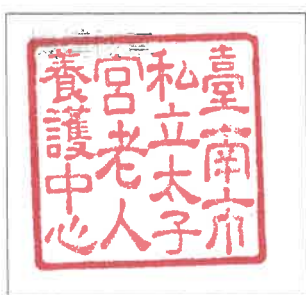 臺南市
私立太子
宮老人
養護中心